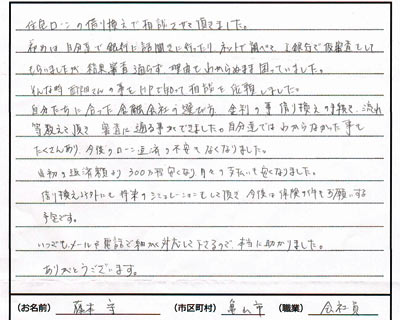 住宅ローンの借り換えで相談させて頂きました。
初めは自分達で銀行に話聞きに行ったり ネットで調べて、2銀行で仮審査をして
もらいましたが 結果審査通らず 理由もわからぬまま困っていました。
そんな時 さんの事をHPで知って相談を依頼しました。
自分たちに合った金融会社の選び方 金利の事 借り換えの手続き、流れ
等教えて頂き 審査に通る事ができました。自分達ではわからなかった事も
たくさんあり、今後のローン返済の不安もなくなりました。
当初の返済額より300万程安くなり月々の支払いも安くなりました。
借り換え以外にも将来のシミュレーションをして頂き 今後は保険の件もお願いする
予定です。
いつでもメールや電話で細かく対応して下さるので、本当に助かりました。
ありがとうございます。
(お名前) 藤本 守 (市区町村) 亀山市 (職業) 会社員